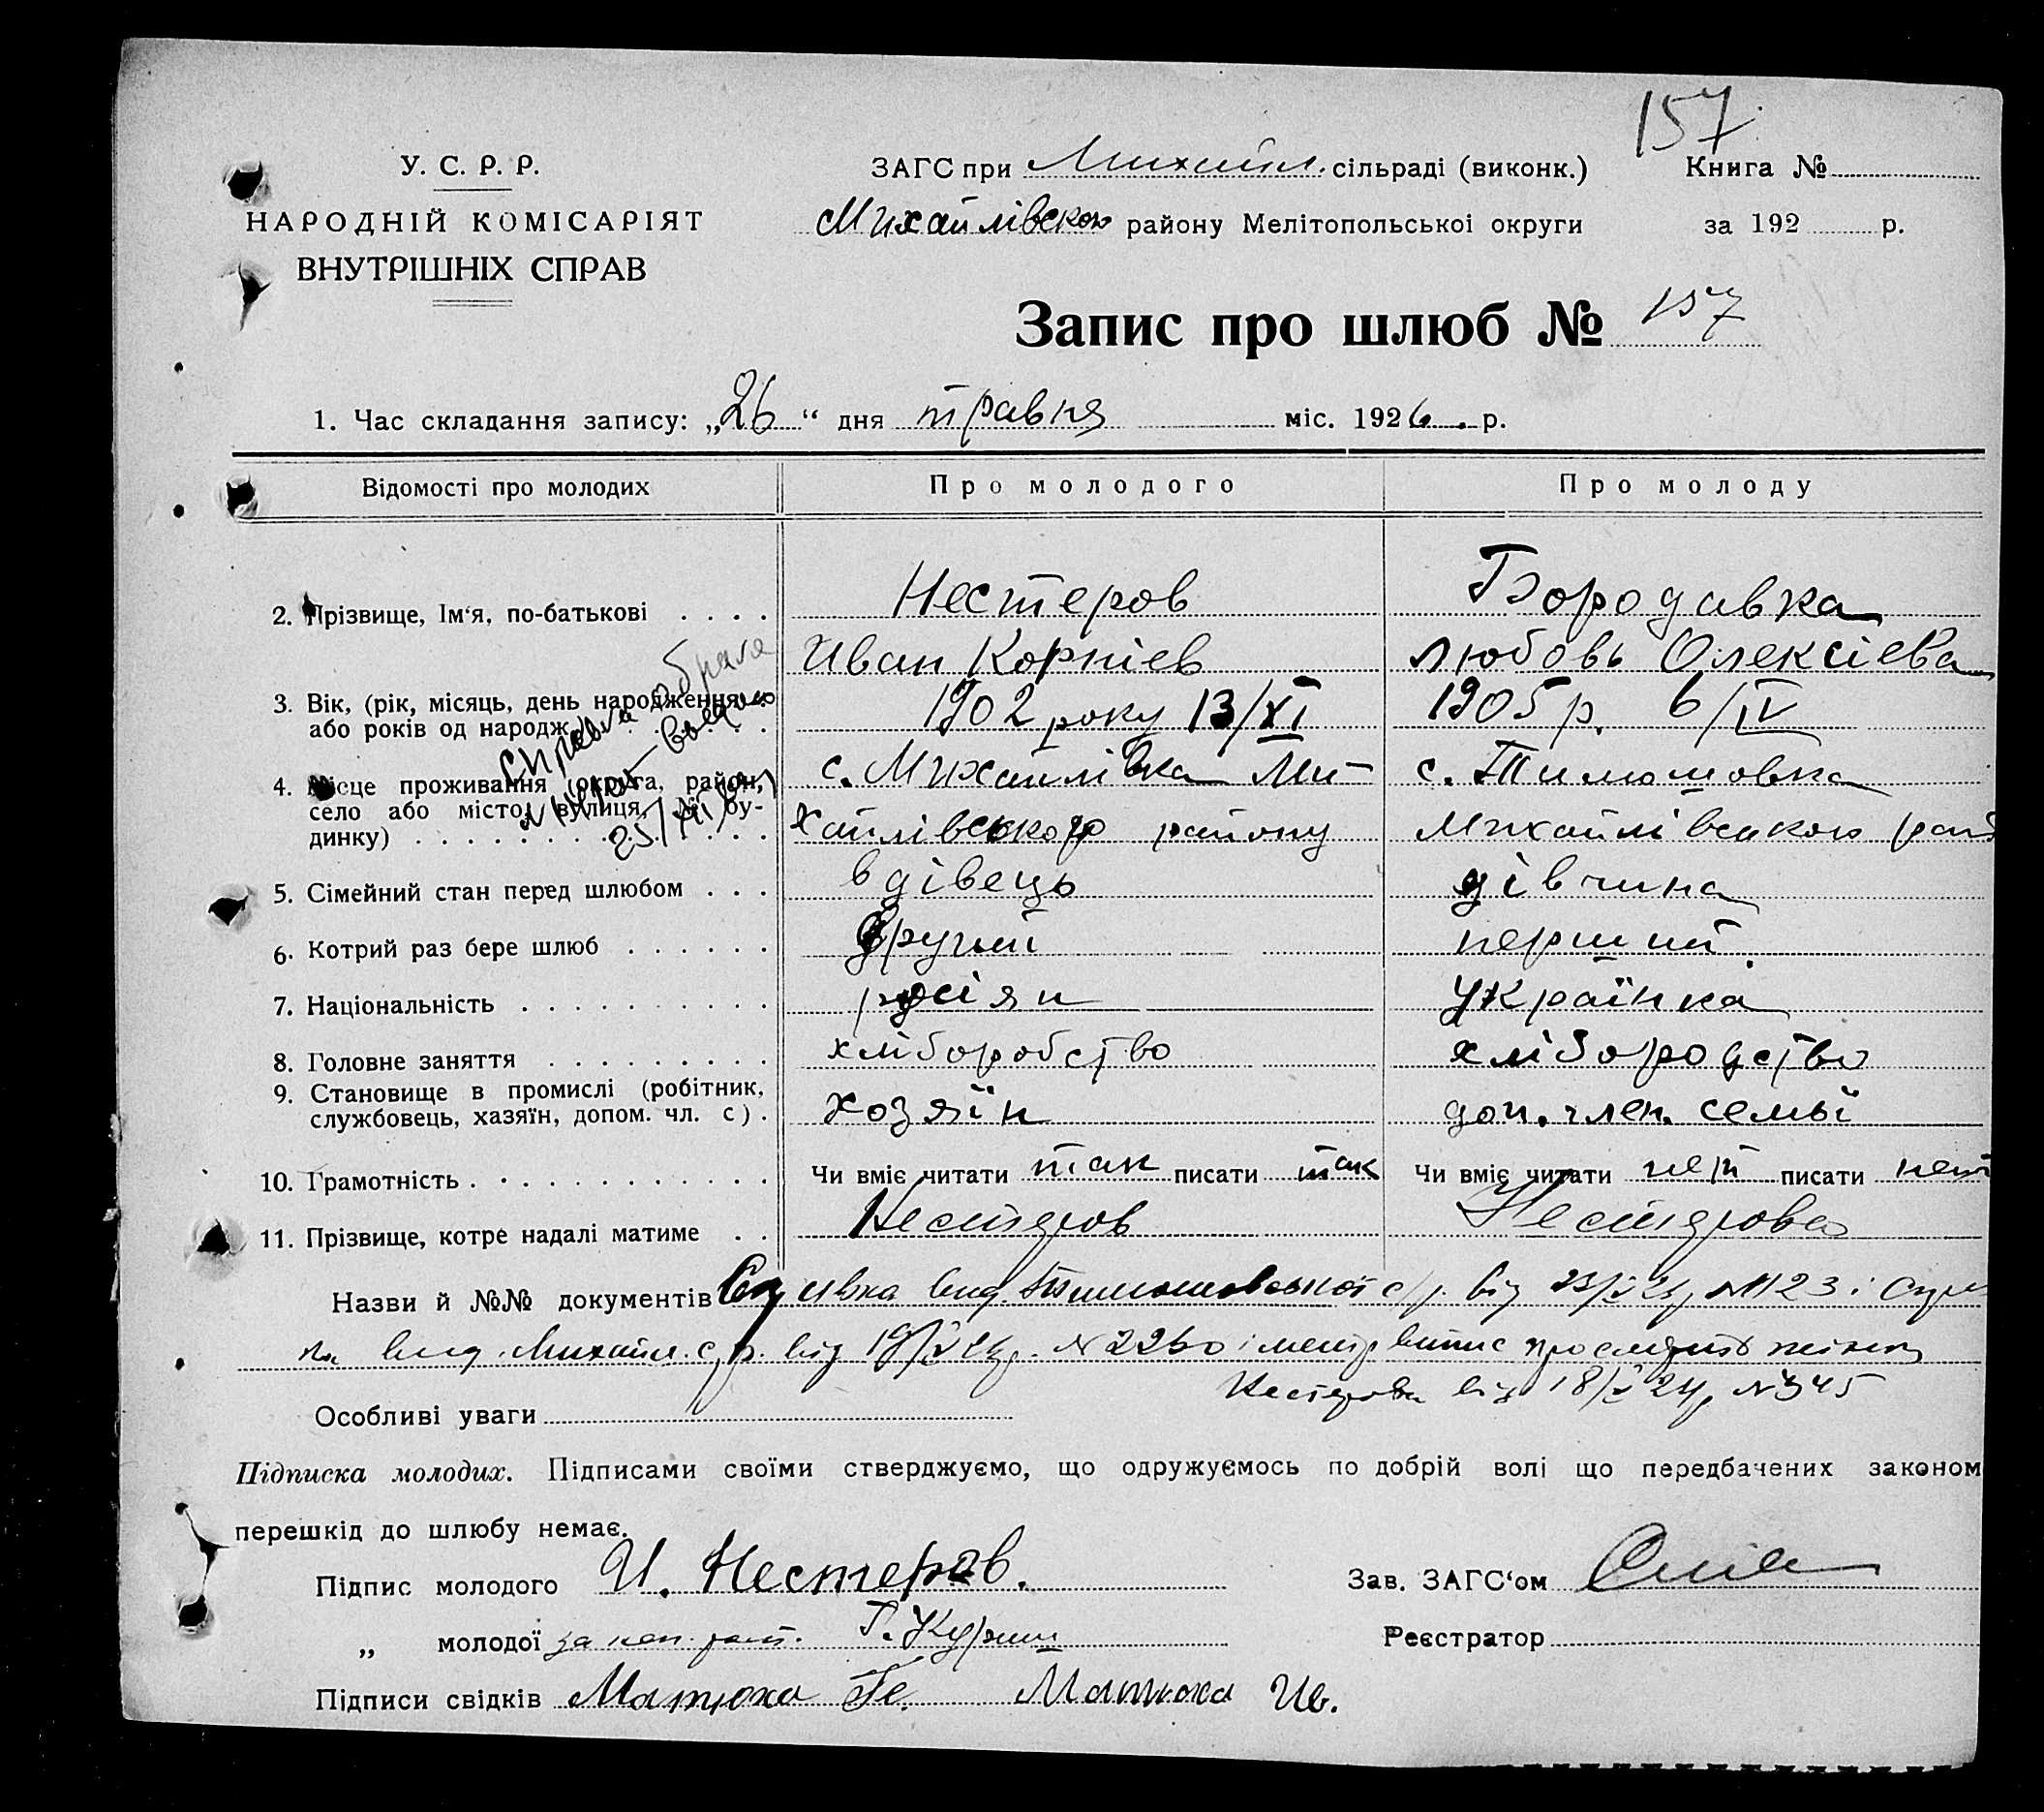 157
У. С. Р. Р.
НАРОДНІЙ КОМІСАРІЯТ
ВНУТРІШНІХ СПРАВ
ЗАГС при Михайл. сільраді (виконк.)
Михайлівского району Мелітопольської округи
Книга №
за 192 р.
Запис про шлюб № 157
1. Час складання запису: „26“ дня травня міс. 1926. р.
Відомості про молодих Про молодого Про молоду
2. Прізвище, Ім'я, по-батькові Нестеров Бородавка
Иван Корніев Любовь Олексіева
3. Вік, (рік, місяць, день народження 1902 року 13/XI 1905 р. 6/IV
або років од народж.
4. Місце проживання (округа, район, с. Михайлівка Ми- с. Тимошовка
село або місто, вулиця, № бу- хайлівського району Михайлівського рай
динку)
5. Сімейний стан перед шлюбом вдівець дівчина
6. Котрий раз бере шлюб другий перший
7. Національність росіян Українка
8. Головне заняття хліборобство хліборобство
9. Становище в промислі (робітник,
службовець, хазяїн, допом. чл. с). хозяїн доп. член. семьї
10. Грамотність Чи вміє читати так писати так Чи вміє читати нет писати нет
11. Прізвище, котре надалі матиме Нестеров Нестерова
Справка
25/XII
Назви й №№ документів вид. Тимошовської с/р. від № 1123 і
ка вид. Михайл. с/р. від № 2250 і
Нестерова від 18/V 24 р. № 345
Особливі уваги
Підписка молодих. Підписами своїми стверджуємо, що одружуємось по добрій волі що передбачених законом
перешкід до шлюбу немає.
Підпис молодого И. Нестеров.
Зав. ЗАГС'ом
„ молодої за
Реєстратор
Підписи свідків Матюха Ге. Матюха Ив.